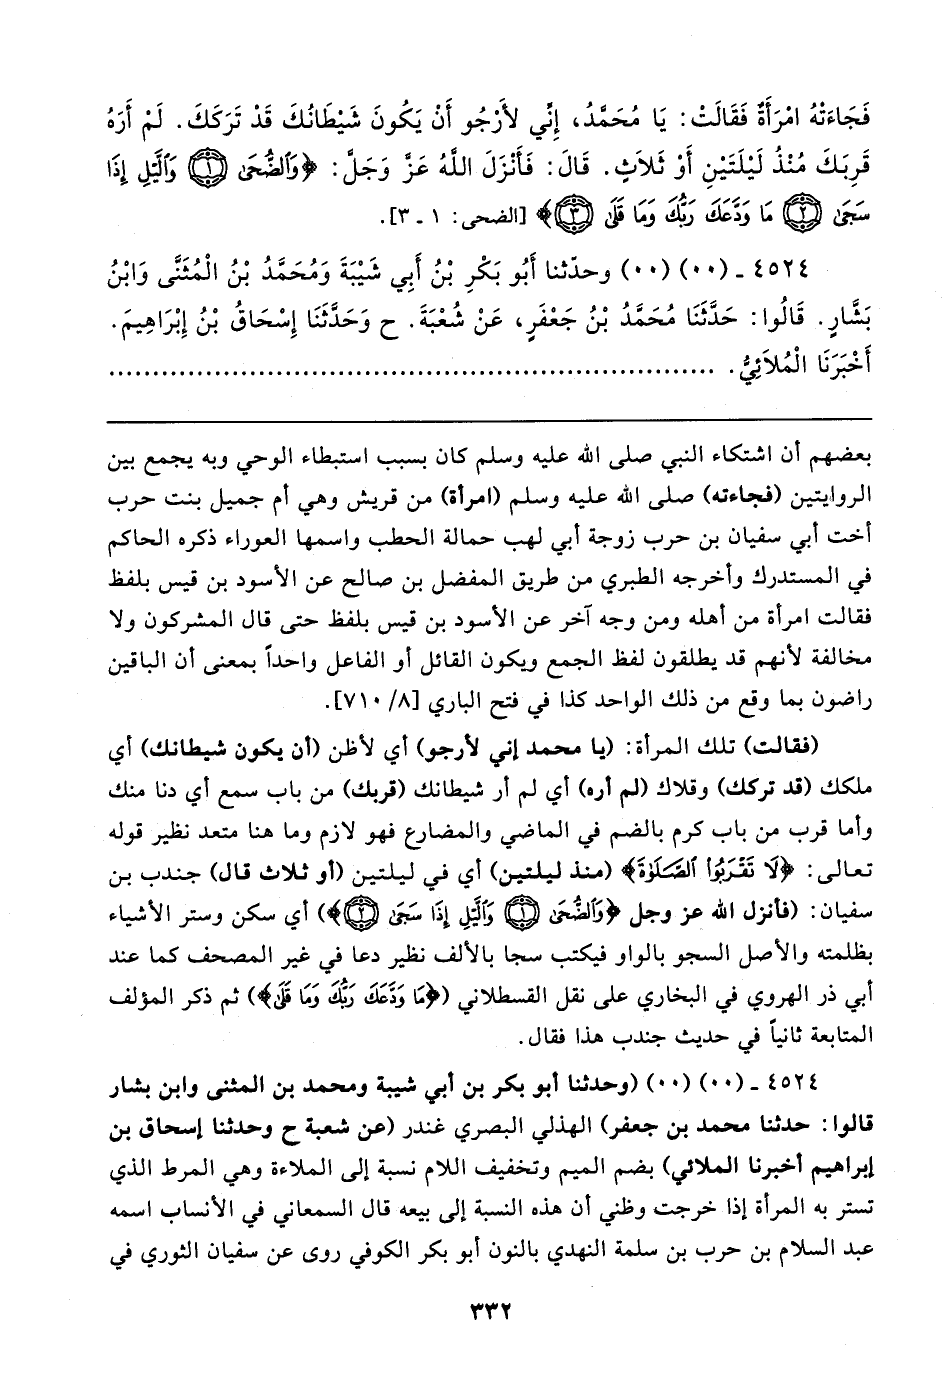 فَجَاءَتْهُ امْرَأَةٌ فَقَالَتْ: يَا مُحَمَّدُ، إِنِّي لأَرْجُو أَنْ يَكُونَ شَيْطَانُكَ قَدْ تَرَكَكَ. لَمْ أَرَهُ
قَرِبَكَ مُنْذُ لَيْلَتَيْنِ أَوْ ثَلاَثٍ. قَالَ: فَأَنْزَلَ اللَّهُ عَزَّ وَجَلَّ: ﴿وَٱلضُّحَىٰ ۝١ وَٱلَّيْلِ إِذَا
سَجَىٰ ۝٢ مَا وَدَّعَكَ رَبُّكَ وَمَا قَلَىٰ ۝٣﴾ [الضحى: ١ ـ ٣].
٤٥٢٤ ـ (٠٠) (٠٠) وحدّثنا أَبُو بَكْرِ بْنُ أَبِي شَيْبَةَ وَمُحَمَّدُ بْنُ الْمُثَنَّى وَابْنُ
بَشَّارٍ. قَالُوا: حَدَّثَنَا مُحَمَّدُ بْنُ جَعْفَرٍ، عَنْ شُعْبَةَ. ح وَحَدَّثَنَا إِسْحَاقُ بْنُ إِبْرَاهِيمَ.
أَخْبَرَنَا الْمُلاَئِيُّ. ......................................................................
بعضهم أن اشتكاء النبي صلى الله عليه وسلم كان بسبب استبطاء الوحي وبه يجمع بين
الروايتين (فجاءته) صلى الله عليه وسلم (امرأة) من قريش وهي أم جميل بنت حرب
أخت أبي سفيان بن حرب زوجة أبي لهب حمالة الحطب واسمها العوراء ذكره الحاكم
في المستدرك وأخرجه الطبري من طريق المفضل بن صالح عن الأسود بن قيس بلفظ
فقالت امرأة من أهله ومن وجه آخر عن الأسود بن قيس بلفظ حتى قال المشركون ولا
مخالفة لأنهم قد يطلقون لفظ الجمع ويكون القائل أو الفاعل واحداً بمعنى أن الباقين
راضون بما وقع من ذلك الواحد كذا في فتح الباري [٨/ ٧١٠].
(فقالت) تلك المرأة: (يا محمد إني لأرجو) أي لأظن (أن يكون شيطانك) أي
ملكك (قد تركك) وقلاك (لم أره) أي لم أر شيطانك (قربك) من باب سمع أي دنا منك
وأما قرب من باب كرم بالضم في الماضي والمضارع فهو لازم وما هنا متعد نظير قوله
تعالى: ﴿لَا تَقْرَبُوا۟ ٱلصَّلَوٰةَ﴾ (منذ ليلتين) أي في ليلتين (أو ثلاث قال) جندب بن
سفيان: (فأنزل الله عز وجل ﴿وَٱلضُّحَىٰ ۝١ وَٱلَّيْلِ إِذَا سَجَىٰ ۝٢﴾) أي سكن وستر الأشياء
بظلمته والأصل السجو بالواو فيكتب سجا بالألف نظير دعا في غير المصحف كما عند
أبي ذر الهروي في البخاري على نقل القسطلاني (﴿مَا وَدَّعَكَ رَبُّكَ وَمَا قَلَىٰ﴾) ثم ذكر المؤلف
المتابعة ثانياً في حديث جندب هذا فقال.
٤٥٢٤ ـ (٠٠) (٠٠) (وحدثنا أبو بكر بن أبي شيبة ومحمد بن المثنى وابن بشار
قالوا: حدثنا محمد بن جعفر) الهذلي البصري غندر (عن شعبة ح وحدثنا إسحاق بن
إبراهيم أخبرنا الملائي) بضم الميم وتخفيف اللام نسبة إلى الملاءة وهي المرط الذي
تستر به المرأة إذا خرجت وظني أن هذه النسبة إلى بيعه قال السمعاني في الأنساب اسمه
عبد السلام بن حرب بن سلمة النهدي بالنون أبو بكر الكوفي روى عن سفيان الثوري في
٣٣٢